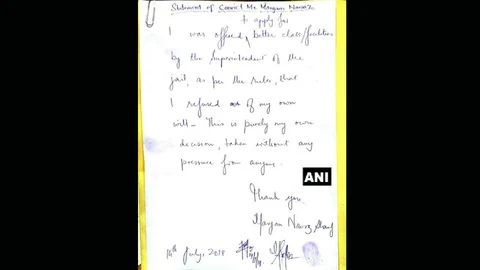 Statement of Convict Ms Maryam Nawaz
to apply for
I was offered, better class/facilities
by the Superintendent of the
jail, as per the rules, that
I refused of my own
will - This is purely my own
decision, taken without any
pressure from anyone.
ANI
Thank you.
Maryam Nawaz Sharif
14th July, 2018